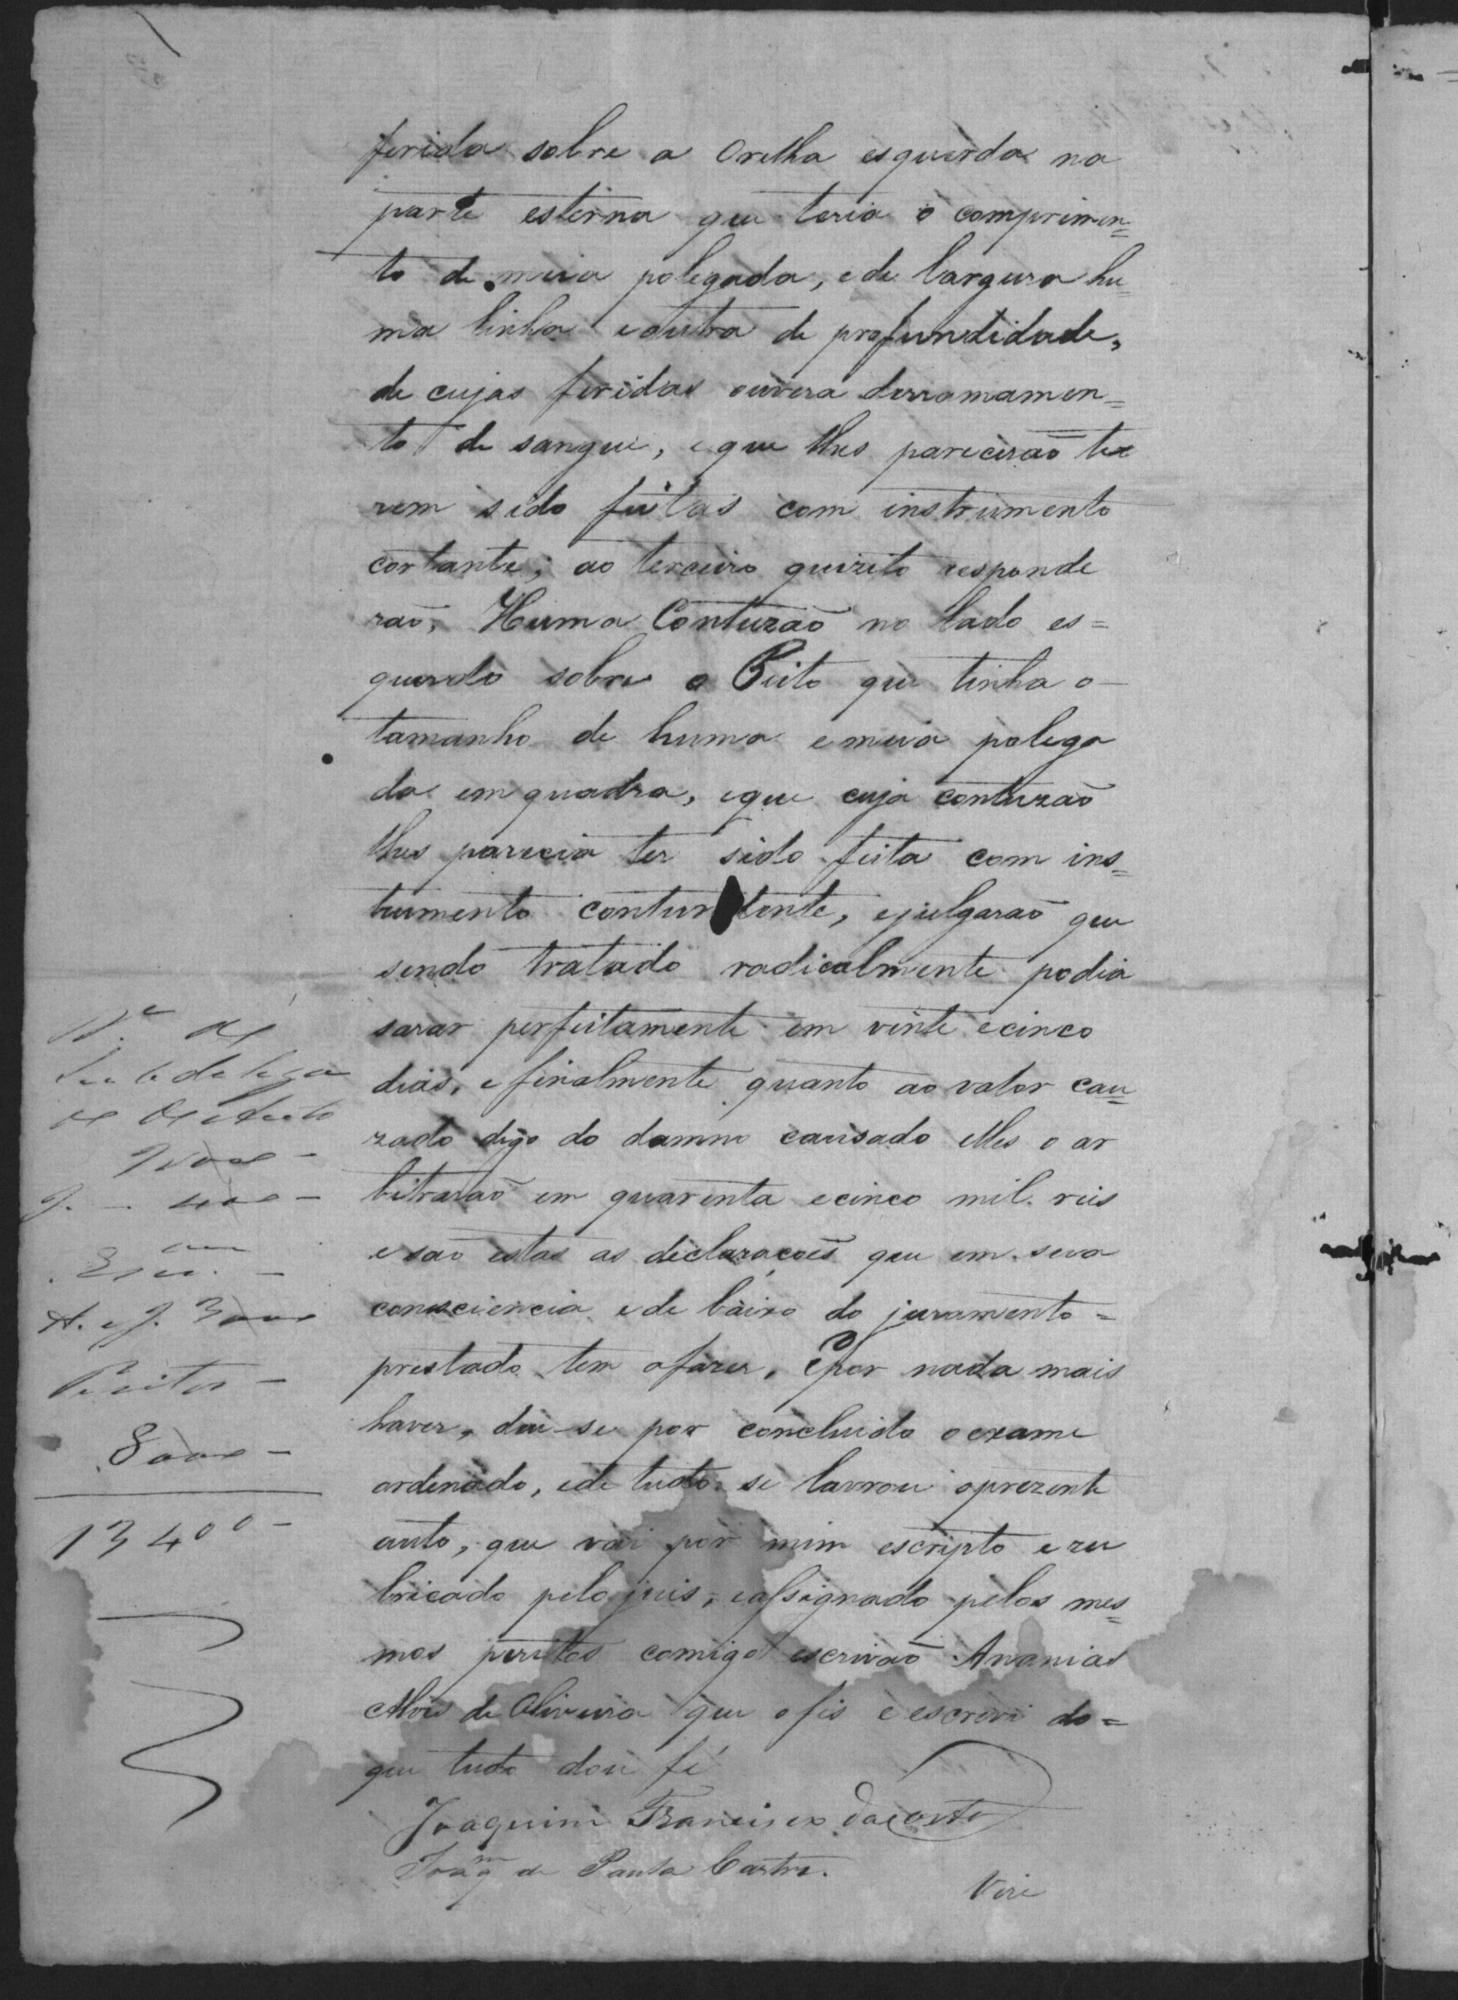 ferida sobre a Orelha esquerda na
parte esterna que teria o comprimen=
to de meia polegada, e de largura hu=
ma linha e outra de profundidade,
de cujas feridas ouvera derramamen=
to de sangue, e que lhes parecerão te
rem sido feitas com instrumento
cortante; ao terceiro quizito responde
rão, Huma Contuzão no lado es=
querdo sobre o Peito que tinha o
tamanho de huma e meia polega
da em quadra, e que cuja contuzão
lhes parecia ter sido feita com ins=
trumento contundente, e julgarão que
sendo tratado radicalmente podia
sarar perfeitamente em vinte e cinco
dias, e finalmente quanto ao valor cau=
zado digo do damno causado elles o ar
bitrarão em quarenta e cinco mil reis
e são estas as declaracoẽs que em sua
consciencia e de baixo do juramento =
prestado tem a fazer. E por nada mais
haver, deu-se por concluido o exame
ordenado, e de tudo se lavrou o prezente
auto, que vai por mim escripto e ru
bricado pelo juis, e assignado pelos mes=
mos peritos comigo escrivão Ananias
Alves de Oliveira que o fis e escrevi do =
que tudo dou fé
Joaquim Francisco da Costa
Joaqm de Paula Castro.
Vire
400 -
A. e J. 3000
Peritos -
8000 -
13400 -